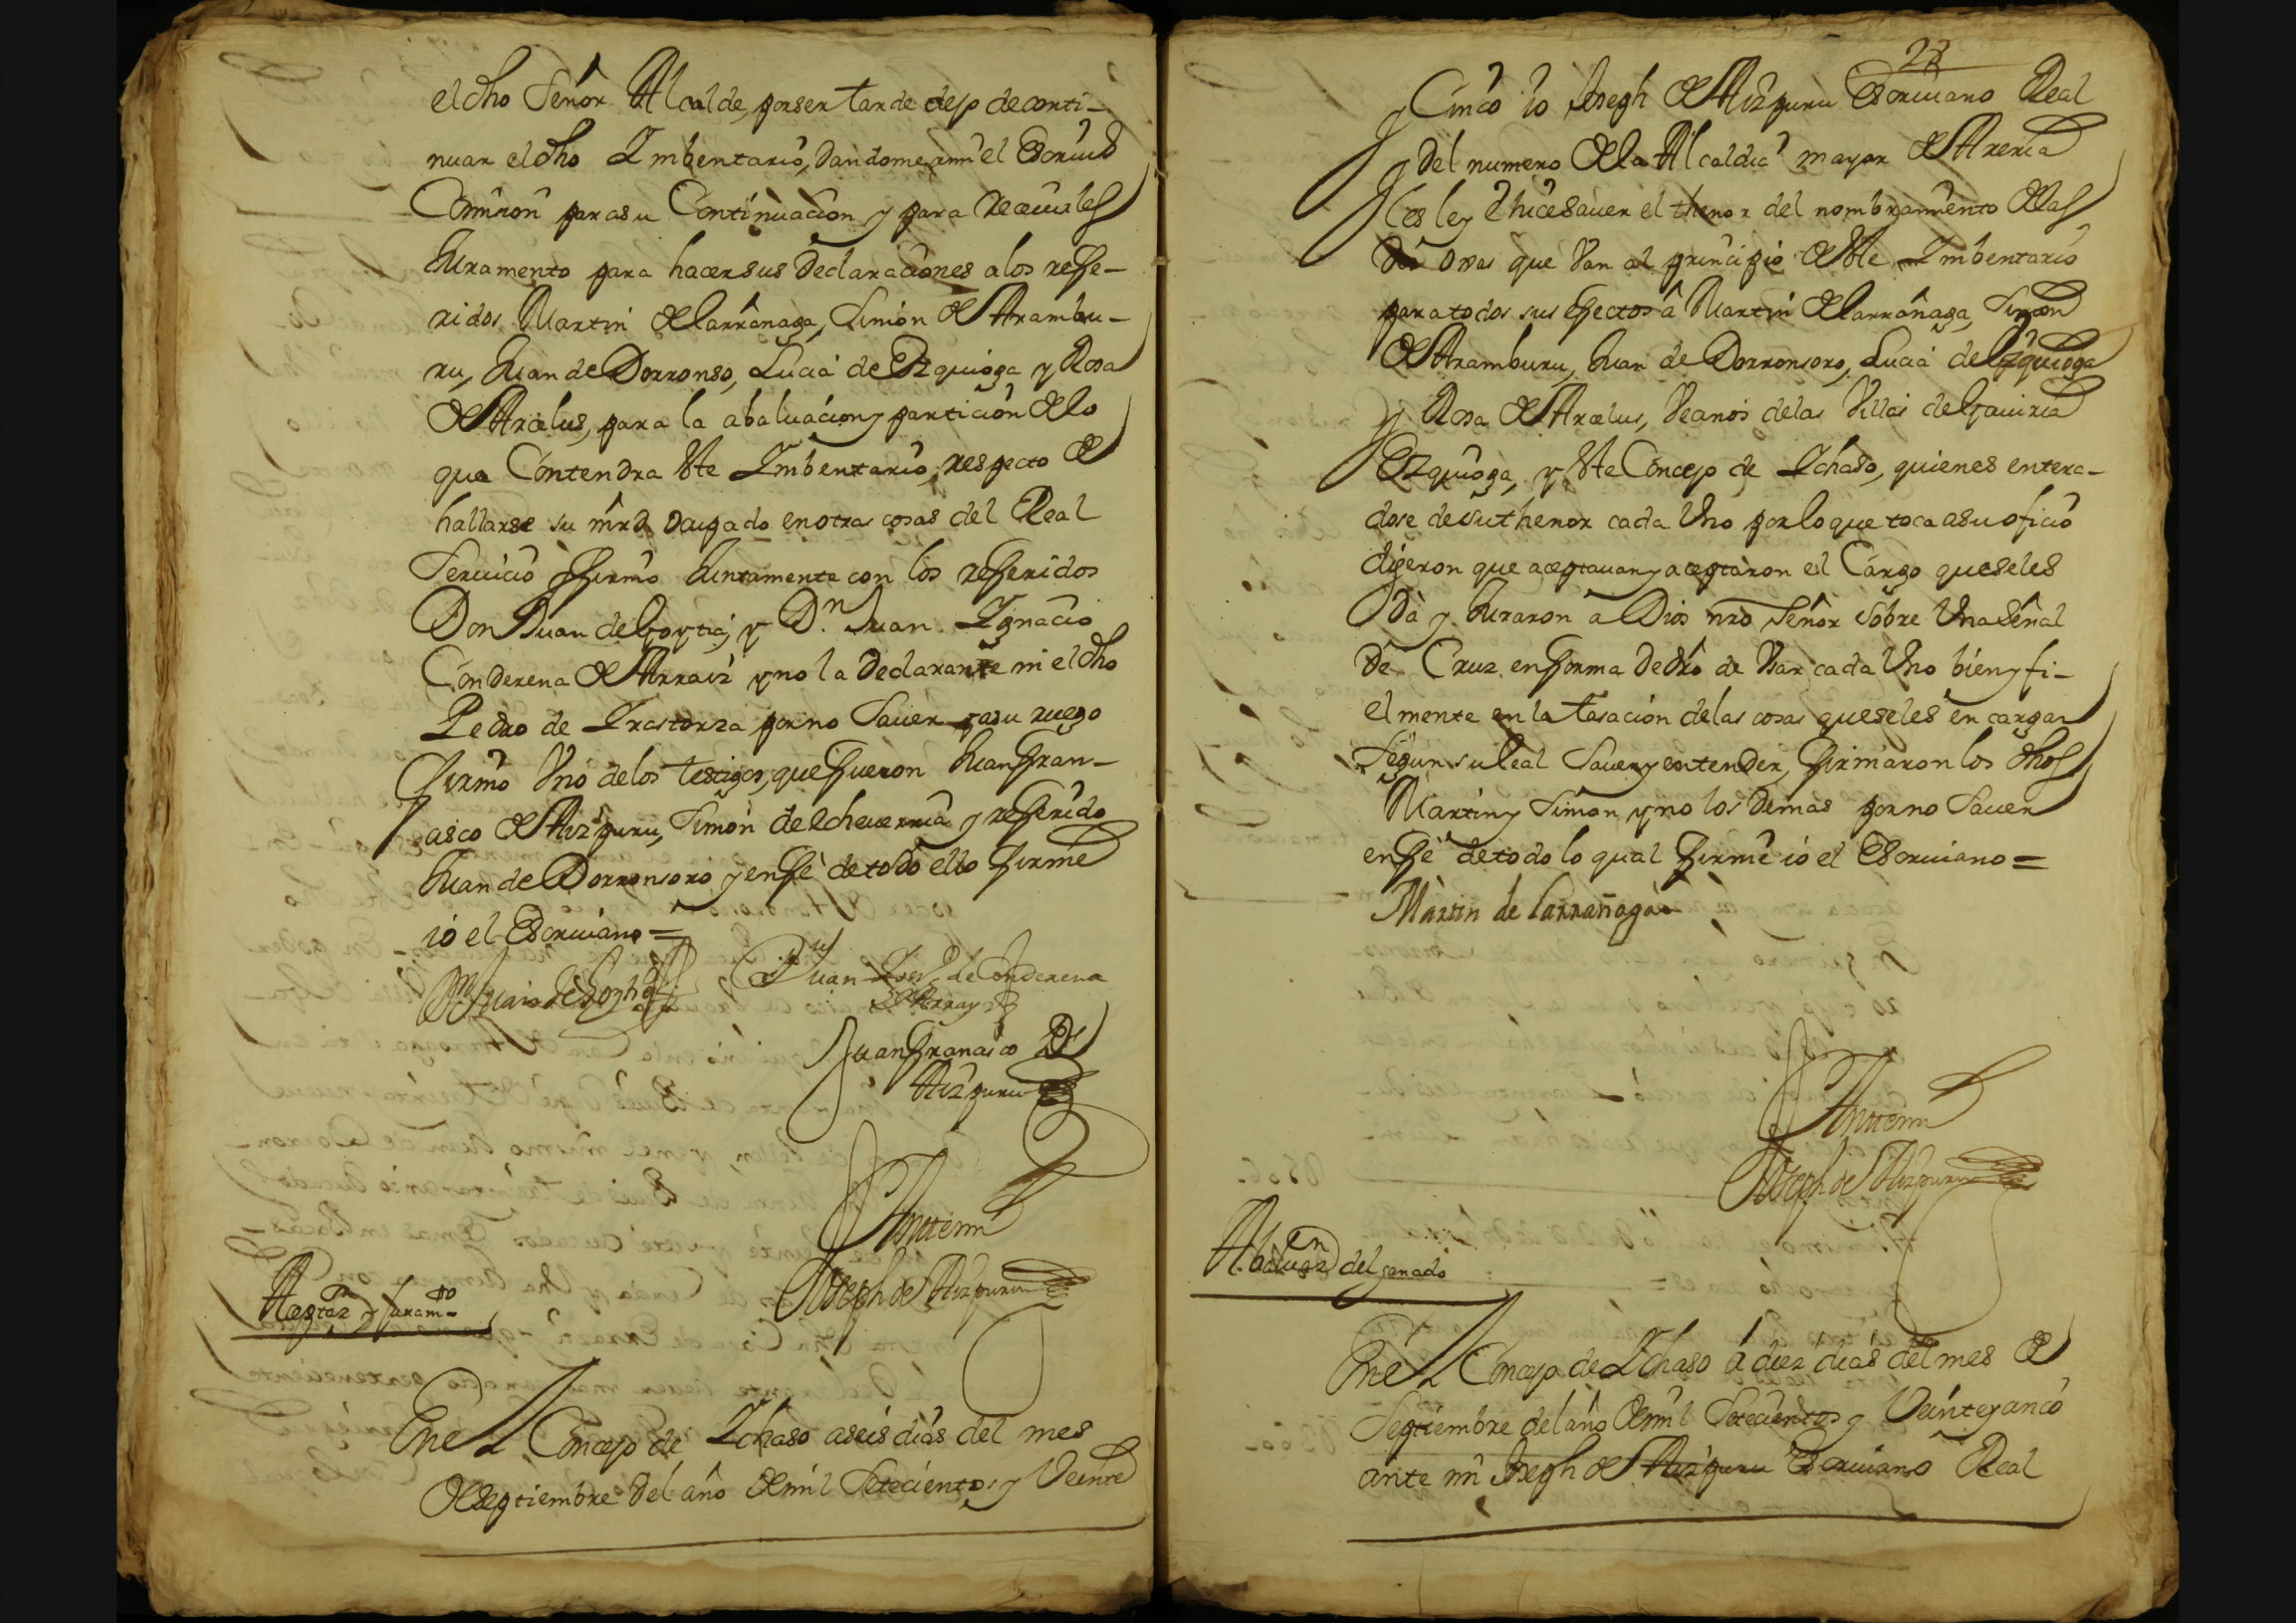 el dho Señor Alcalde, por ser tarde dejo de conti-
nuar el dho Imbentario, dandome a mi el Escriuº
Comision para su Continuacion y para recauirles
Juramento para hacer sus Declaraciones a los refe-
ridos Martin de larrañaga, Simon de Arambu-
ru, Juan de Dorronso, Lucia de Ezquioga y Rosa
de Arcelus, para la abaluacion y particion de lo
que Contendra este Imbentario, respecto de
hallarse su mrd ocupado en otras cosas del Real
Seruicio y firmo Juntamente con los referidos
Don Juan de Goytia, y Dn. Juan Ignacio
Conderena de Arraiz y no la Declarante ni el dho
Pedro de Irastorza por no Sauer y a su ruego
firmo Uno de los testigos, que fueron Juan fran-
cisco de Aizpuru, Simon de echeuerria y referido
Juan de Dorronsoro y en fe de todo ello firme
io el Escriuano =
Juan de Conderena
de Arrayz
Juan francisco de
Aizpuru
Antemi
Joseph de Aizpuru
Aceptazon y Juramto
En el Concejo de Ichaso a seis dias del mes
de septiembre del año de mil Setecientos y Veinte
22
y Cinco io Joseph de Aizpuru Escriuano Real
y del numero de la Alcaldia mayor de Areria
les ley e hice sauer el thenor del nombramiento de las
ojas que Van al principio de este Imbentario
para todos sus efectos â Martin de larrañaga, Simon
de Aramburu, Juan de Dorronsoro, Lucia de Ezquioga
y Rosa de Arcelus, Vecinos de las Villas de Gauiria
Ezquioga, y este Concejo de Ichaso, quienes entera-
dose de su thenor cada Uno por lo que toca a su oficio
digeron que aceptauan y aceptaron el Cargo que se les
Dà y Juraron a Dios nro Señor Sobre Una Señal
De Cruz en forma De dro de Usar cada Uno bien y fi-
elmente en la tasacion de las cosas que se les encargan
Segun su leal Sauer y entender, firmaron los dhos
Martin y Simon y no los Demas por no Sauer
en fè de todo lo qual firme io el Escriuano =
Martin de larrañaga
Antemi
Joseph de Aizpuru
Abaluazon del ganado
En el Concejo de Ichaso á diez dias del mes de
Septiembre del año de mil Setecientos y Veinte y cinco
ante mi Joseph de Aizpuru Escriuano Real